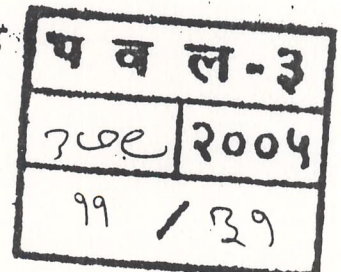 प व ल - ३
२००५
११ / ३१